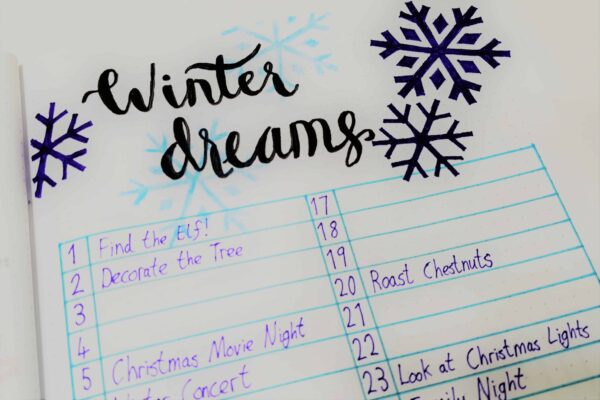 Winter
dreams
1 Find the Elf!
2 Decorate the Tree
3
4
5 Christmas Movie Night
Winter Concert
17
18
19
20 Roast Chestnuts
21
22
23 Look at Christmas Lights
Family Night